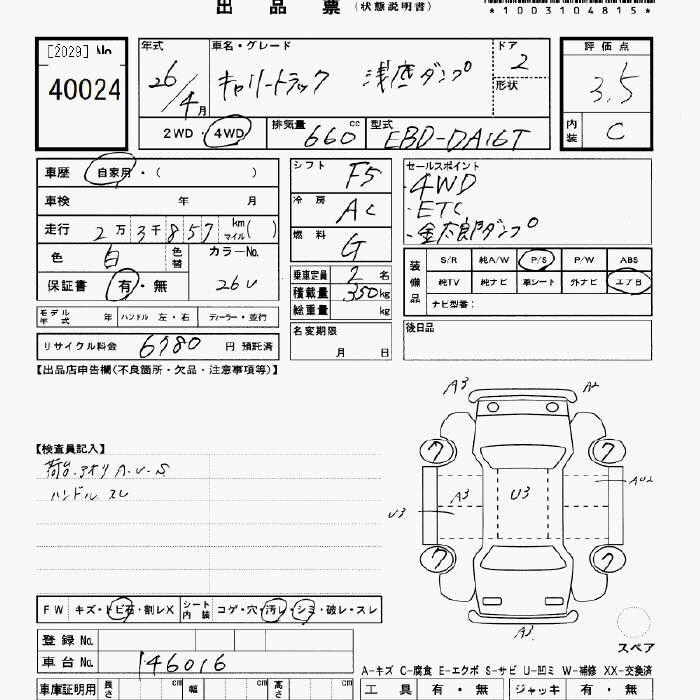 出品票 (状態説明書)
*1003104815*
[2029] No.
40024
年式 車名・グレード ドア
26/4月 キャリートラック 浅底ダンプ 2
形状
2WD・4WD 排気量 660 cc 型式 EBD-DA16T
評価点
3.5
内装 C
車歴 自家用・( )
車検 年 月
走行 2万3千857 km マイル( )
色 白 色替 カラーNo.
保証書 有・無 26U
モデル年式 年 ハンドル 左・右 ディーラー・並行
リサイクル料金 6780 円 預託済
シフト F5
冷房 AC
燃料 G
乗車定員 2 名
積載量 350 kg
総重量 kg
名変期限
月 日
セールスポイント
・4WD
・ETC
・金太郎ダンプ
装備品 S/R 純A/W P/S P/W ABS
純TV 純ナビ 革シート 外ナビ エアB
ナビ型番:
後日品
【出品店申告欄(不良箇所・欠品・注意事項等)】
【検査員記入】
荷台.アオリ A.U.S
ハンドル スレ
A3 A2
7 7
U3 A3 U3 AU2
7 7
A3
スペア
FW キズ・トビ石・割レX シート内装 コゲ・穴・汚レ・シミ・破レ・スレ
登録 No.
車台 No. 146016
A-キズ C-腐食 E-エクボ S-サビ U-凹ミ W-補修 XX-交換済
車庫証明用 長さ cm 幅 cm 高さ cm 工具 有・無 ジャッキ 有・無